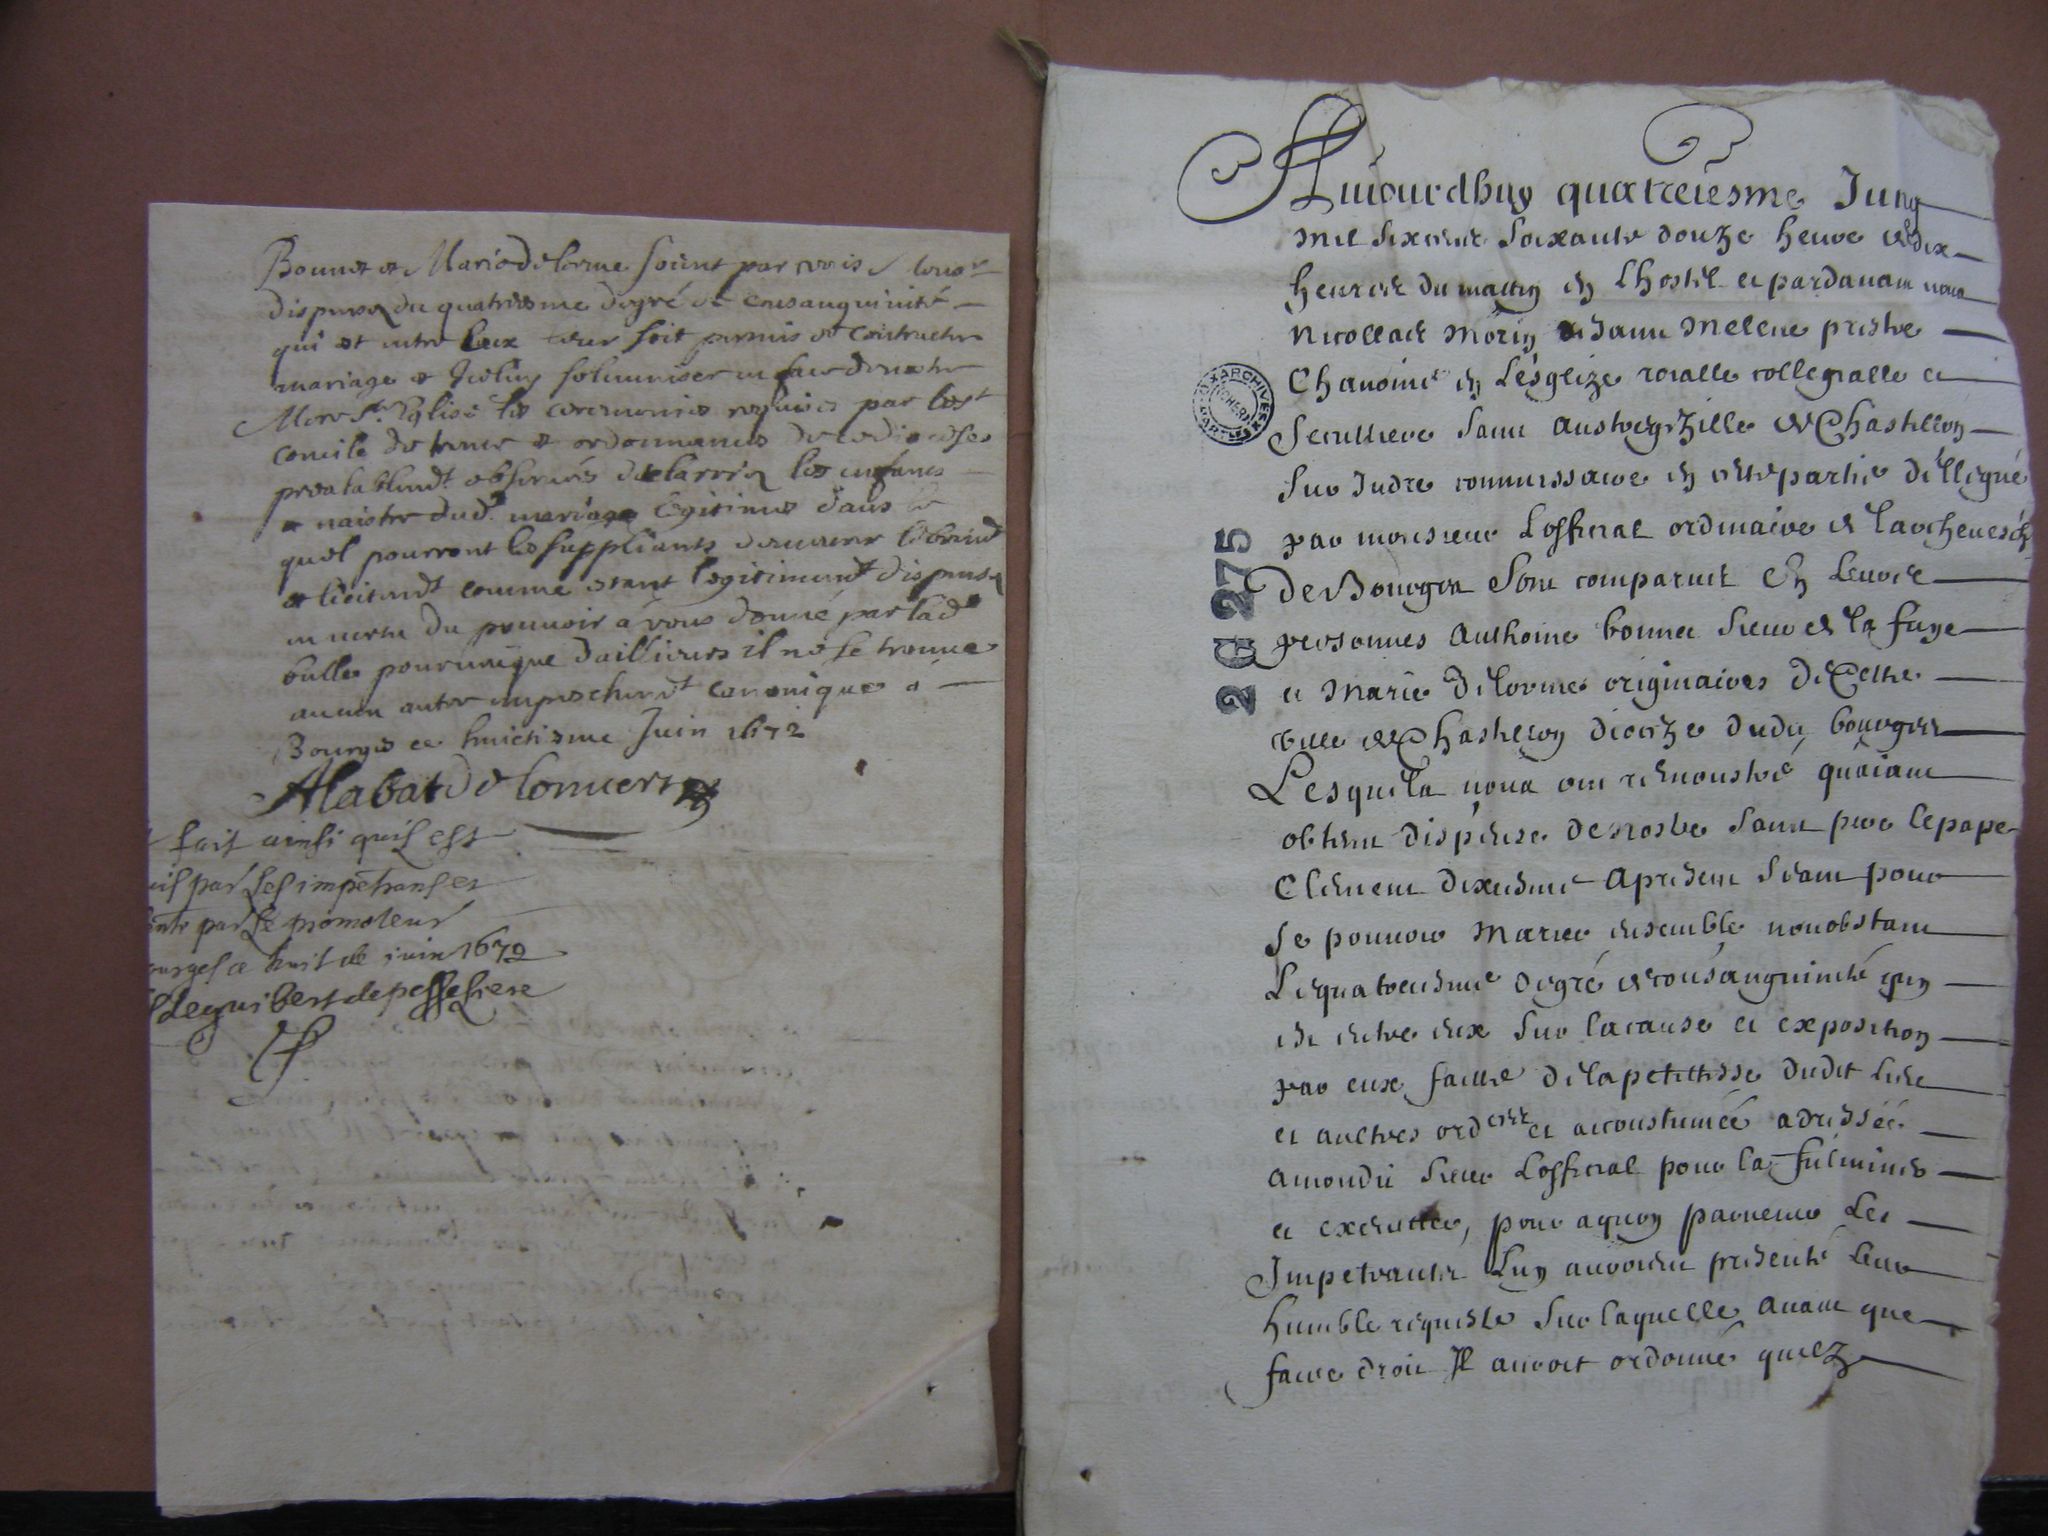 Bonnet et Marie Delorme soient par vous
dispensez du quatriesme degré de consanguinité
qui est entre eux leur soit permis de contracter
mariage et iceluy solemniser en face de nostre
Mere Ste Eglise les ceremonies requises par le st
concile de trente et ordonnances de ce diocese
prealablemt observées declarer les enfans
a naistre dud. mariage legitimes dans le
quel pourront les suppliants demeurer libremt
et licitemt comme estant legitimemt dispensez
en vertu du pouvoir à vous donné par lade
bulle pourveu que dailleurs il ne se trouve
aucun autre empeschemt canonique a
Bourges ce huictiesme Juin 1672
Alabat
fait ainsi quil est
par les impetrans et
par le promoteur
ourges ce huit de juin 1672
Aujourdhuy quatreiesme Juing
mil six cent soixante douze heure de dix
heures du mattin en Lhostel et pardavant nous
Nicollas Morin et Jean Melene prestre
Chanoine en Lesglize roialle collegialle et
seculliere saint Austregezille de Chastillon
sur Indre commissaire en cette partie dellegué
par monsieur Lofficial ordinaire de larchevesché
de Bourges sont comparus en Leurs
personnes Anthoine bonnet sieur de la fuye
et Marie delorme originaires de Cette
ville de Chastillon dioceze dudit bourges
Lesquels nous ont remonstré quaiant
obtenu dispense de nostre saint pere le pape
Clement dixiesme apresent seant pour
se pouvoir marier ensemble nonobstant
Le quatreiesme degré de consanguinité quy
est entre eux sur la cause et exposition
par eux faitte de la petittesse dudit lieu
et aultres ordres et accoustumée adressée
amondit sieur Lofficial pour la fulminer
et executter, pour aquoy parvenir Les
Impetrants Luy auroient presenté leur
humble requeste sur laquelle avant que
faire droit Il auroit ordonné quilz
2 G 275
ARCHIVES